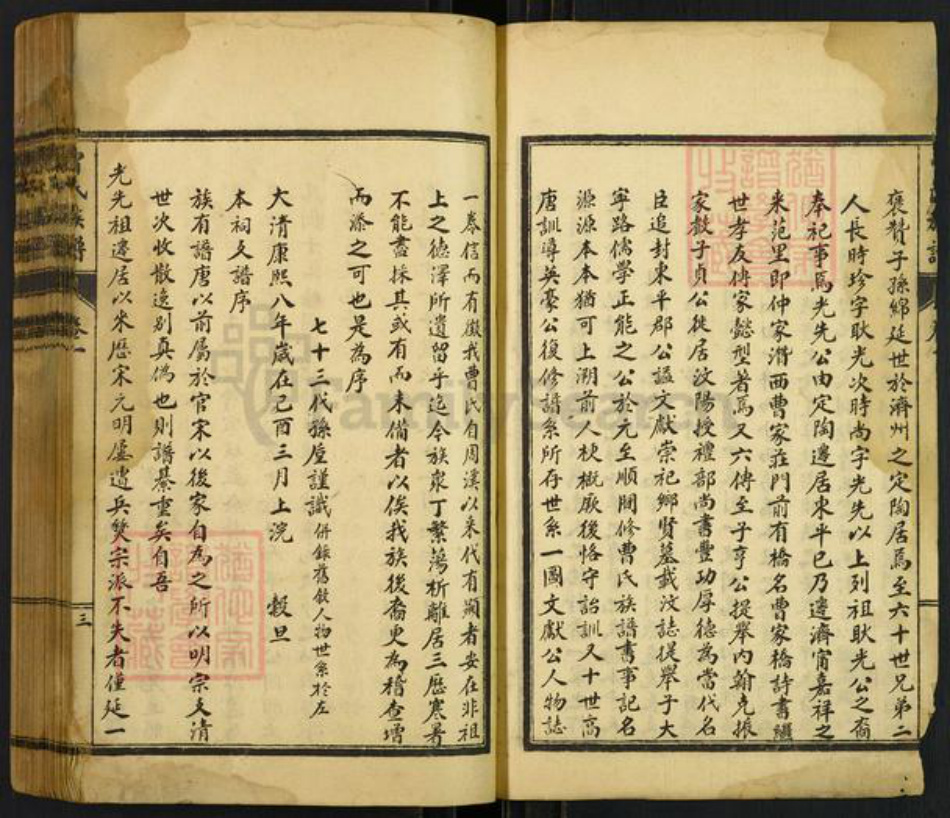 褒贊子孫綿延世於濟州之定陶居焉至六十世兄弟二
人長時珍字耿光次時尚字光先以上列祖耿光公之裔
奉祀事焉光先公由定陶遷居東平已乃遷濟甯嘉祥之
來范里即仲家淄西曹家莊門前有橋名曹家橋詩書繼
世孝友傳家懿型著焉又六傳至子亨公提舉內翰克振
家教子貞公徙居汶陽授禮部尚書豐功厚德為當代名
臣追封東平郡公諡文獻崇祀鄉賢墓載汶誌從舉子大
寧路儒學正能之公於元至順間修曹氏族譜書事記名
源源本本猶可上溯前人梗概厥後恪守詒訓又十世高
唐訓導英豪公復修譜系所存世系一國文獻公人物誌
一卷信而有徵我曹氏自周漢以來代有顯者安在非祖
上之德澤所遺留乎迄今族衆丁繁蕩析離居三歷寒暑
不能盡採其或有而未備者以俟我族後裔更為稽查增
而添之可也是為序
七十三代孫 謹識併錄舊敘人物世系於左
大清康熙八年歲在己酉三月上浣 穀旦
本祠又譜序
族有譜唐以前屬於官宋以後家自為之所以明宗支清
世次收散遠別真偽也則譜綦重矣自吾
光先祖遷居以來歷宋元明屢遭兵燹宗派不失者僅延一
曹氏族譜
卷一
三
FamilySearch